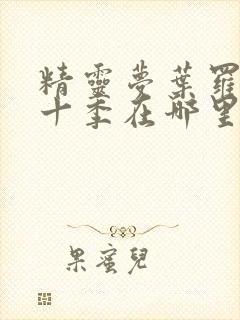 精靈夢葉羅
十季在哪里
果蜜兒